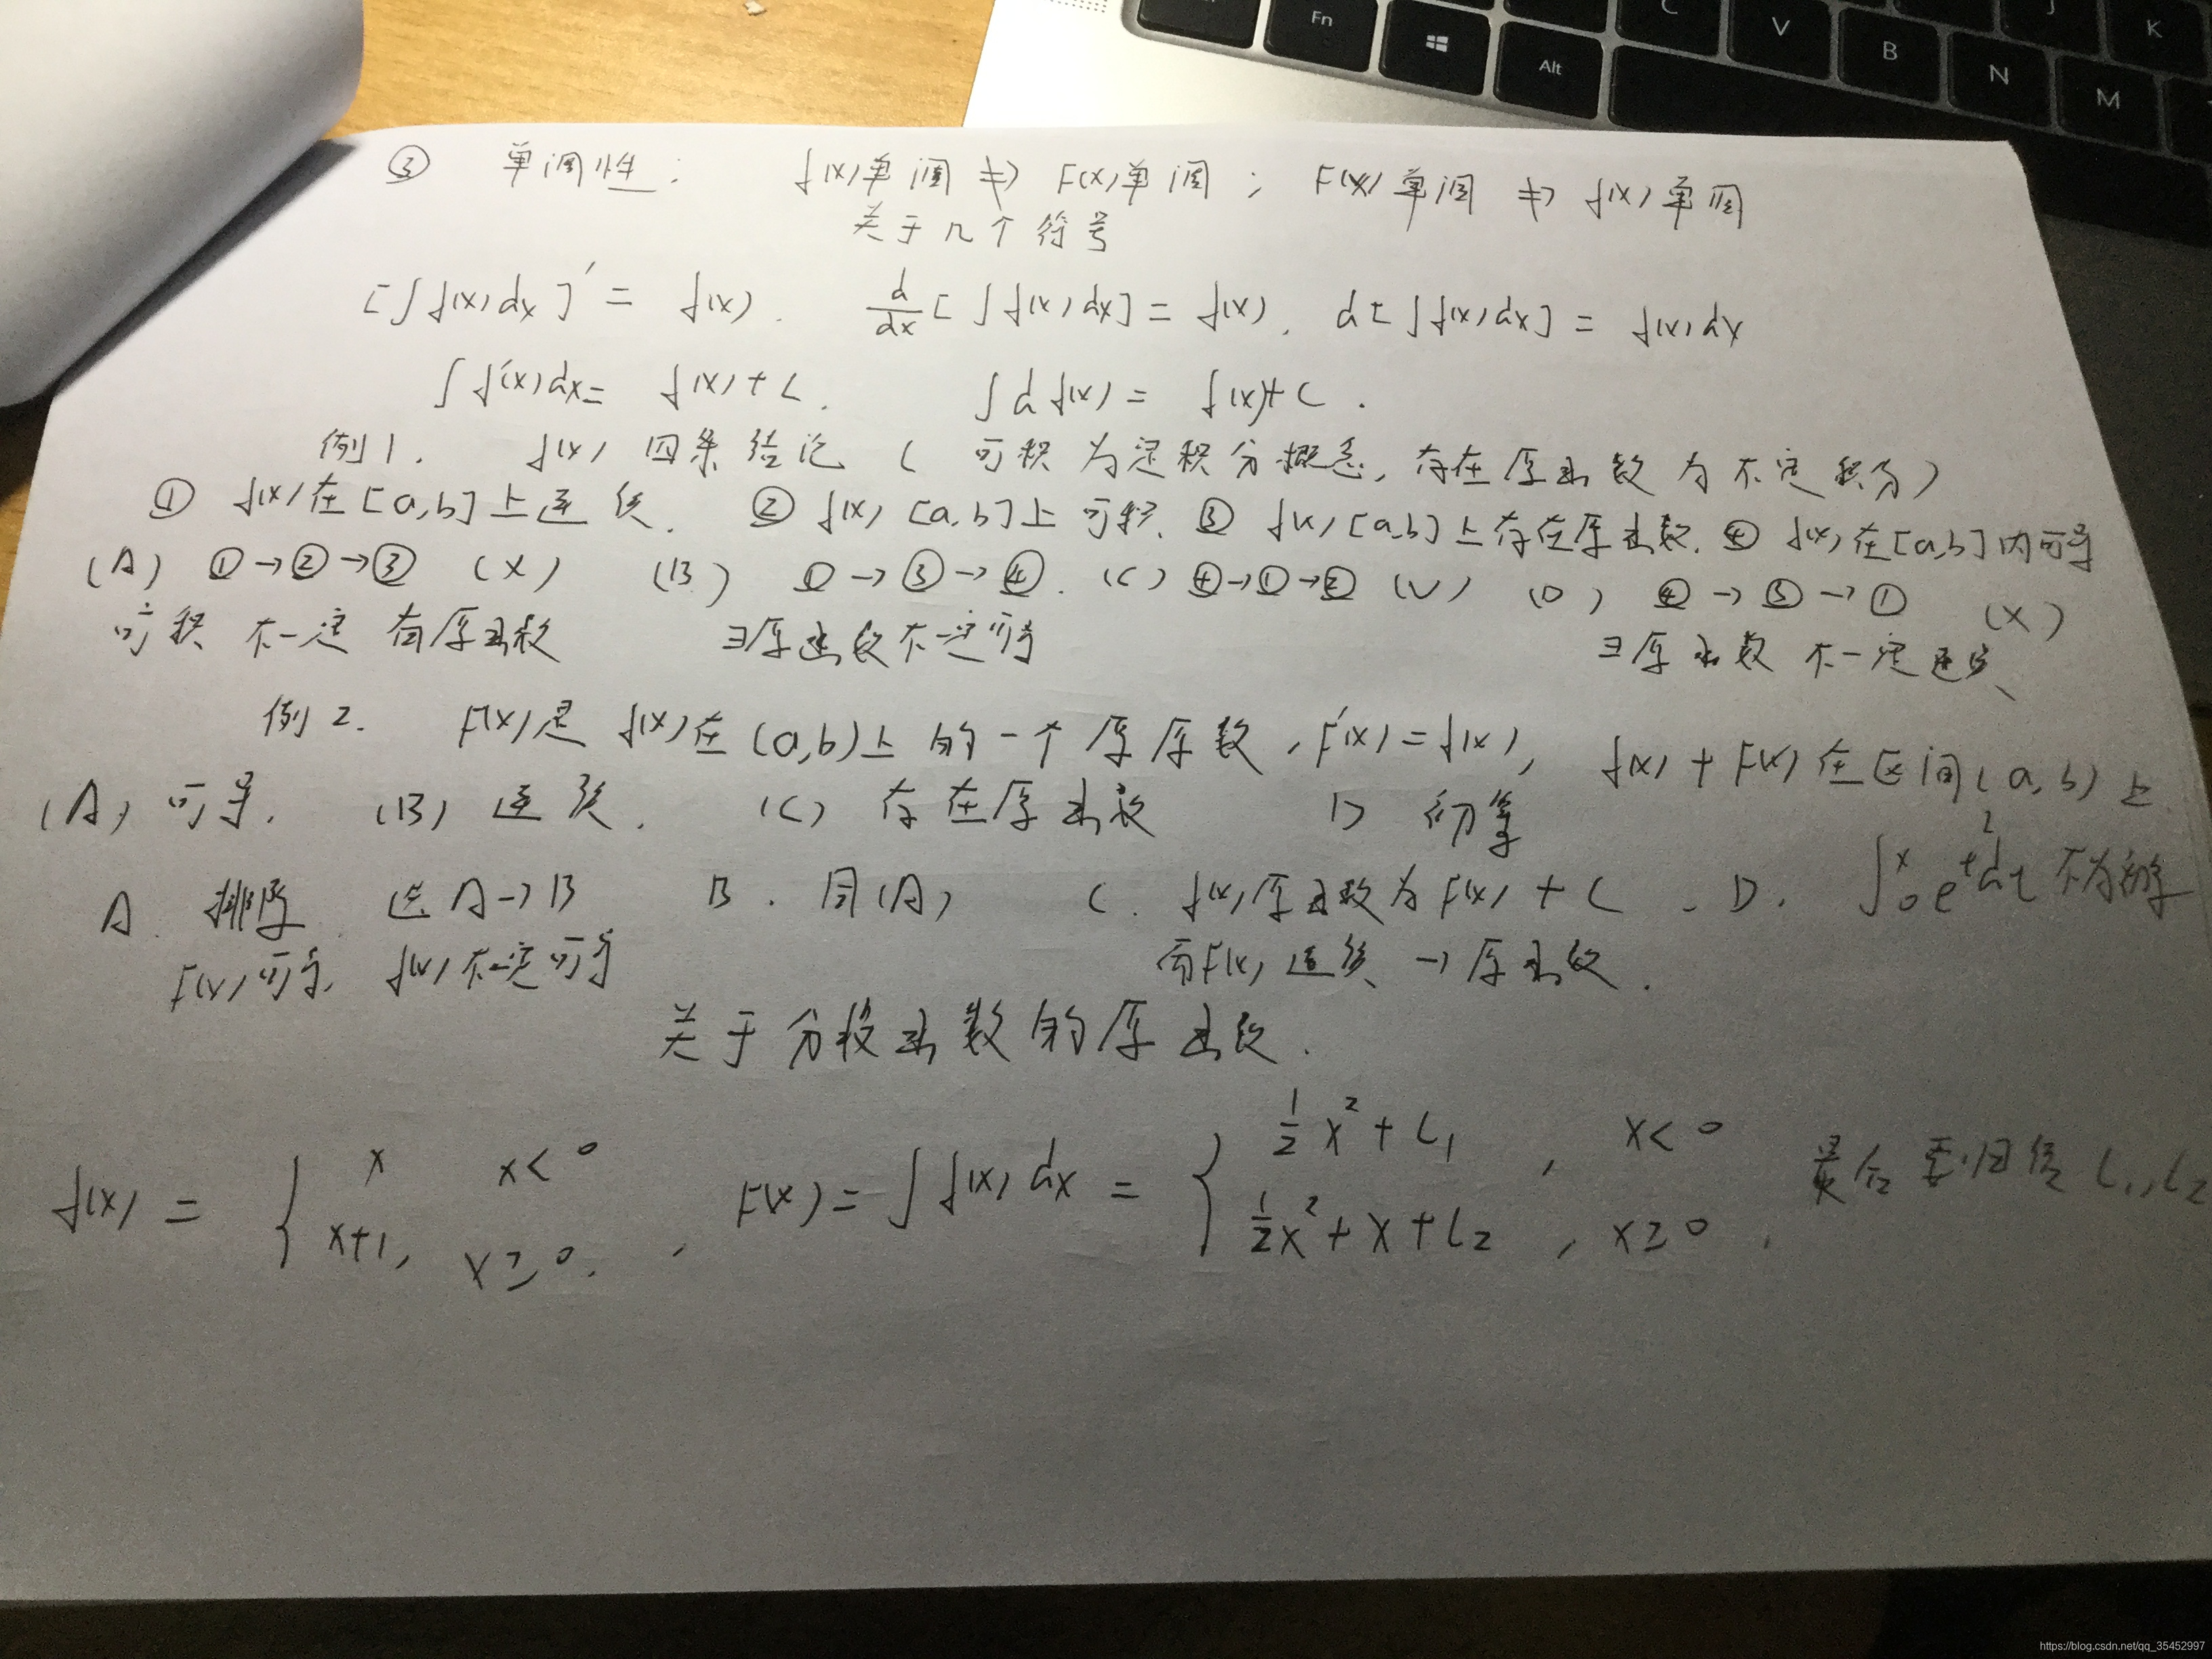 Fn Alt C V B N J M K
③ 单调性: f(x)单调 ⇏ F(x)单调 ; F(x)单调 ⇏ f(x)单调
关于几个符号
[∫f(x)dx]′ = f(x). d/dx[∫f(x)dx] = f(x). d[∫f(x)dx] = f(x)dx
∫f′(x)dx = f(x)+C. ∫df(x) = f(x)+C.
例1. f(x) 四条结论 ( 可积为定积分概念, 存在原函数为不定积分)
① f(x)在[a,b]上连续. ② f(x)[a,b]上可积. ③ f(x)[a,b]上存在原函数. ④ f(x)在[a,b]内可导
(A) ①→②→③ (X) (B) ①→③→④. (C) ④→①→② (√) (D) ④→③→① (X)
可积不一定有原函数 ∃原函数不一定可导 ∃原函数不一定连续
例2. F(x)是f(x)在(a,b)上的一个原原数, F′(x)=f(x), f(x)+F(x)在区间(a,b)上
(A) 可导. (B) 连续. (C) 存在原函数 D 初等
A. 排除 选A→B B. 同(A) C. f(x)原函数为F(x)+C. D. ∫₀ˣ e^{t²}dt 不为初等
F(x)可导, f(x)不一定可导 而F(x)连续→原函数.
关于分段函数的原函数.
f(x) = { x x<0 x+1, x≥0. , F(x)=∫f(x)dx = { ½x²+C₁, x<0 ½x²+x+C₂, x≥0. C₁, C₂
https://blog.csdn.net/qq_35452997